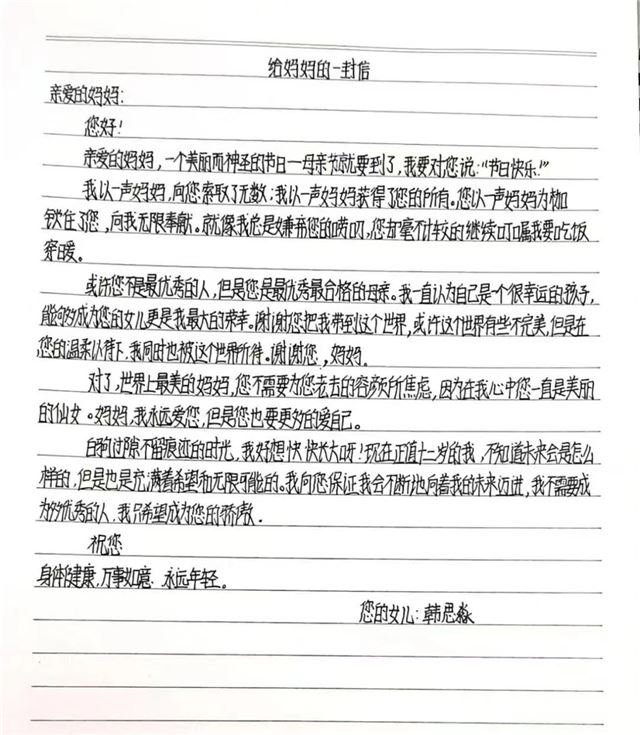 给妈妈的一封信
亲爱的妈妈:
您好!
亲爱的妈妈,一个美丽而神圣的节日一母亲节就要到了,我要对您说:"节日快乐!"
我以一声妈妈,向您索取了无数;我以一声妈妈获得了您的所有。您以一声妈妈为枷
锁住了您,向我无限奉献。就像我总是嫌弃您的唠叨,您却毫不计较的继续叮嘱我要吃饭
穿暖。
或许您不是最优秀的人,但是您是最优秀最合格的母亲。我一直认为自己是一个很幸运的孩子,
能够成为您的女儿更是我最大的荣幸。谢谢您把我带到这个世界,或许这个世界有些不完美,但是在
您的温柔以待下,我同时也被这个世界所待。谢谢您,妈妈.
对了,世界上最美的妈妈,您不需要为您老去的容颜所焦虑,因为在我心中您一直是美丽
的仙女。妈妈,我永远爱您,但是您也要更多的爱自己。
白驹过隙不留痕迹的时光,我好想快快长大呀!现在正值十二岁的我,不知道未来会是怎么
样的,但是也是充满着希望和无限可能的。我向您保证我会不断地向着我的未来迈进,我不需要成
为多优秀的人,我只希望成为您的骄傲.
祝您
身体健康,万事如意.永远年轻。
您的女儿:韩思淼